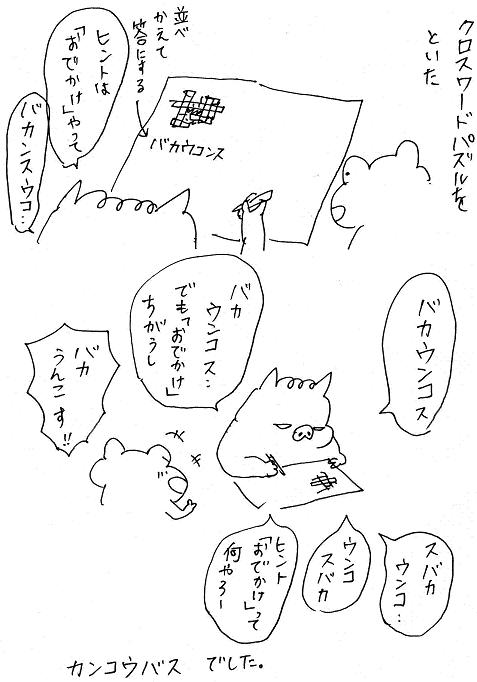 クロスワードパズルを
といた
並べ
かえて
答にする
バカウコンス
ヒントは
「おでかけ」やって
バカンスウコ…
バカウンコス
バカ
ウンコス…
でも「おでかけ」
ちがうし
バカ
うんこす!!
スバカ
ウンコ…
ウンコ
スバカ
ヒント
「おでかけ」って
何やろー
カンコウバス でした。